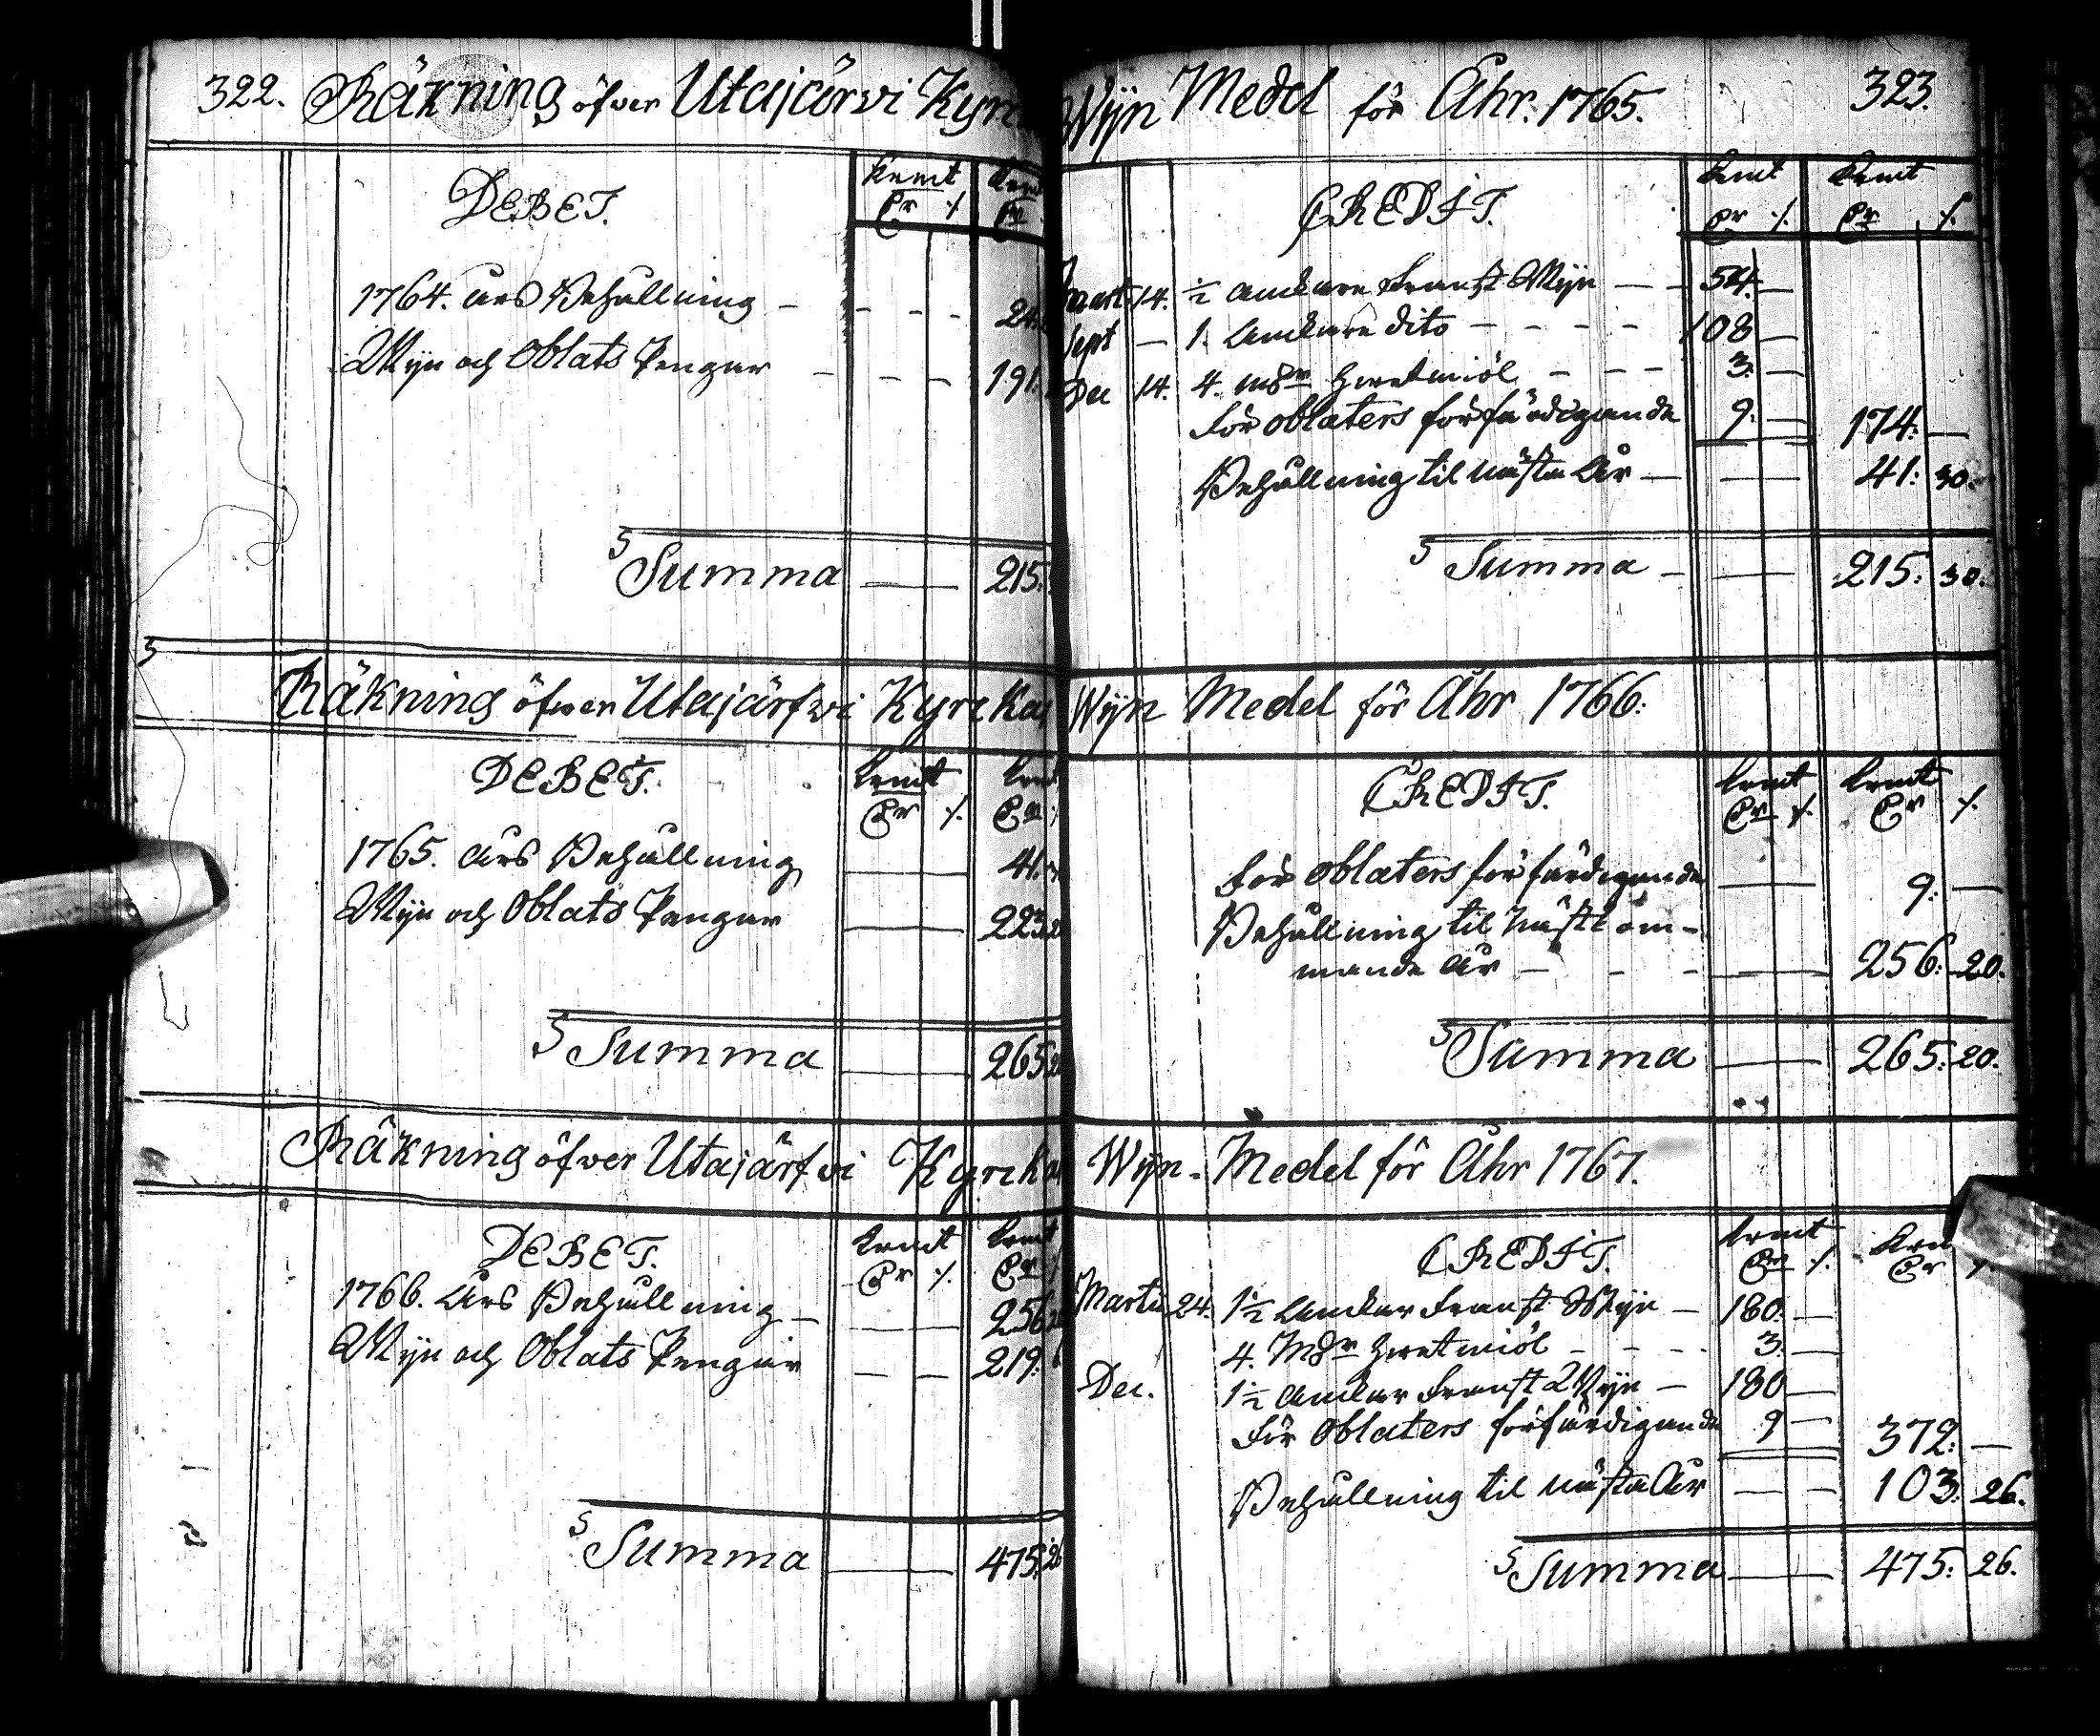 322. Räkning öfver Utajärvi Kyrc
DEBET.
Kpmt Kpm
Dr ⁒ Dr
1764. års Behållning - - - - 24.
Wijn och Oblats Pengar - - - - 191.
Summa — 215.
Räkning öfwer Utajärfwi Kyrcka
DEBET.
Kpmt Kpmt
Dr ⁒ Dr ⁒
1765. års Behållning — 41.
Wijn och Oblats Pengar — 223.
Summa — 265.
Räkning öfwer Utajärfwi Kyrcka
DEBET.
Kpmt Kpmt
Dr ⁒ Dr ⁒
1766. års Behållning — 256
Wijn och Oblats Pengar — — 219.
Summa — 475. 26
Wijn Medel för Åhr. 1765. 323.
CREDIT.
Kpmt Kpmt
Dr ⁒ Dr ⁒
Mart. 14. ½ anckare Franst Wijn — 54. —
Sept — 1. anckare dito - - - - 108 —
Dec 14. 4. Hwetmiöl - - - 3. —
För oblaters förfärdigande 9. — 174. —
Behållning til nästa år — — 41. 30.
Summa — — 215. 30.
Wijn Medel för Åhr 1766.
CREDIT.
Kpmt Kpmt
Dr ⁒ Dr ⁒
För oblaters förfärdigande — 9. —
Behållning til nästkom-
mande år — - - — 256. 20.
Summa — 265. 20.
Wijn-Medel för Åhr 1767.
CREDIT.
Kpmt Kpm
Dr ⁒ Dr ⁒
Martii 24. 1½ anckar Franst Wijn — 180. —
4. Hwetmiöl - - - - 3. —
Dec. 1½ anckar Franst Wijn — 180 —
För Oblaters förfärdigande 9 — 372. —
Behållning til nästa år — — 103. 26.
Summa — — 475. 26.